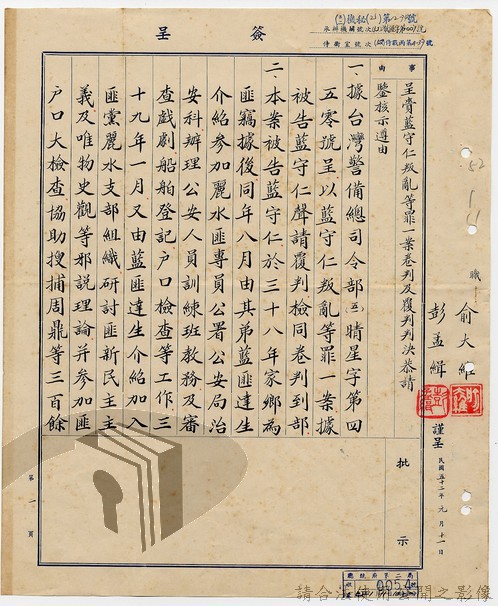 簽呈
事由
呈賫藍守仁叛亂等罪一案卷判及覆判判決恭請
鑒核示遵由
職
俞大維
彭孟緝
謹呈
民國五十二年元月十一日
一、據台灣警備總司令部(五一)晴星字第四
五零號呈以藍守仁叛亂等罪一案據
被告藍守仁聲請覆判檢同卷判到部
二、本案被告藍守仁於三十八年家鄉為
匪竊據後同年八月由其弟藍匪達生
介紹參加麗水匪專員公署公安局治
安科辦理公安人員訓練班教務及審
查戲劇船舶登記戶口檢查等工作三
十九年一月又由藍匪達生介紹加入
匪黨麗水支部組織研討匪新民主主
義及唯物史觀等邪說理論并參加匪
戶口大檢查協助搜捕周鼎等三百餘
批示
第一頁
總統府第二局
0054
請合法使用公開之影像